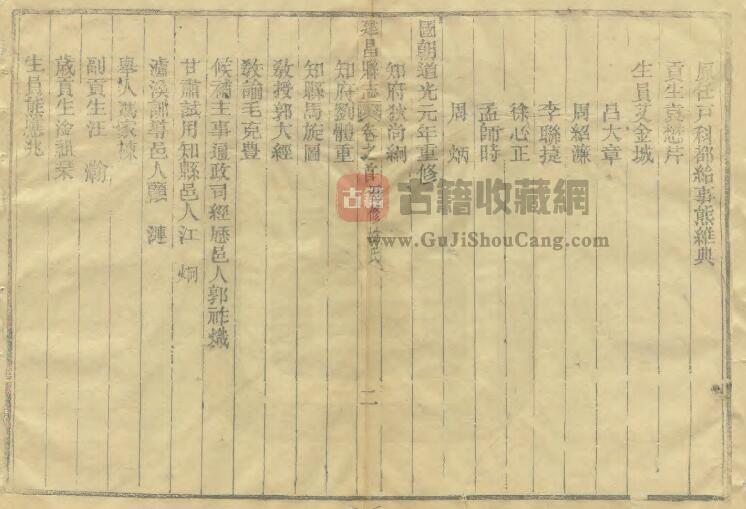 原任戸科都給事熊維典
貢生袁懋芹
生員艾金城
呂大章
周紹濂
李聯提
徐心正
孟師時
周炳
國朝道光元年重修
知府狄尚絅
建昌縣志卷之首 修姓氏
二
知府劉體重
知縣馬旋圖
敎授郭大經
敎諭毛克豊
候補主事通政司經歷邑人郭祚熾
甘肅試用知縣邑人江炯
瀘溪訓導邑人 漣
舉人馮家棟
副貢生汪瀚
歲貢生淦
生員熊應兆
古籍
古籍收藏網
www.GuJiShouCang.com